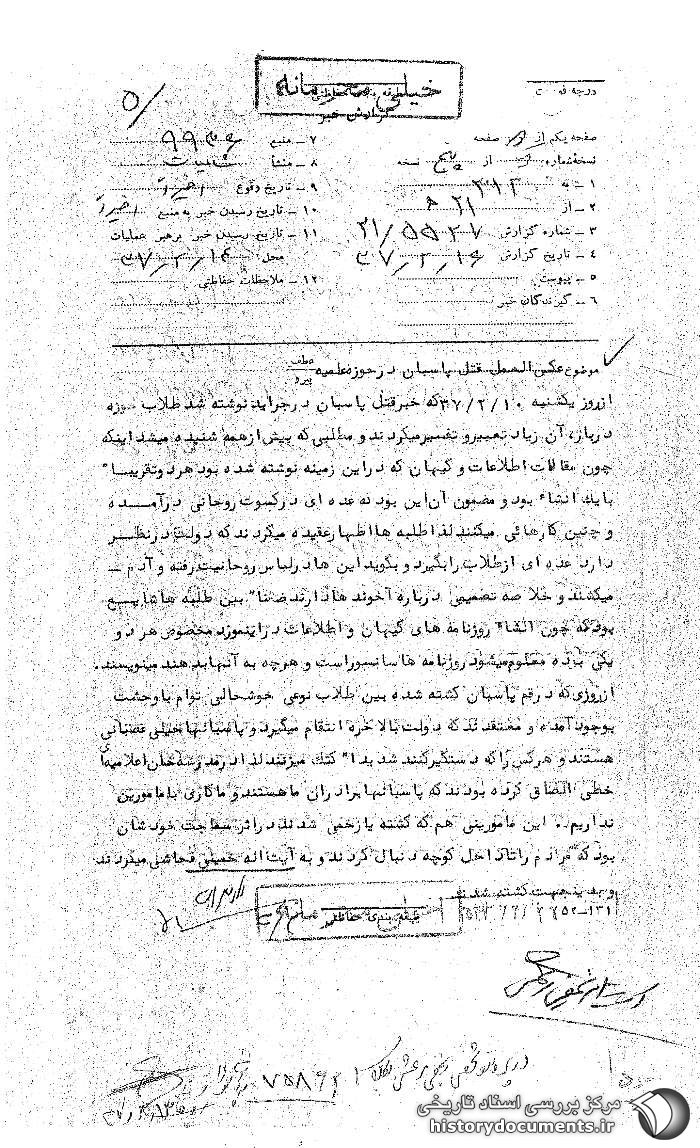 درجه فوریت
خیلی محرمانه
گزارش خبر
۵/
صفحه یکم از صفحه
نسخه شماره از پنج نسخه
۱ـ به ۳۱۲
۲ـ از ۲۱ ه
۳ـ شماره گزارش ۲۱/۵۵۲۷
۴ـ تاریخ گزارش ۳۷/۲/۱۶
۵ـ پیوست
۶ـ گیرندگان خبر
۷ـ منبع ۹۹۳۶
۸ـ منشأ شالیت
۹ـ تاریخ وقوع اخیراً
۱۰ـ تاریخ رسیدن خبر به منبع اخیراً
۱۱ـ تاریخ رسیدن خبر برهبر عملیات
محل ۳۷/۲/۱۴
۱۲ـ ملاحظات حفاظتی
موضوع عکس العمل قتل پاسبان در حوزه علمیه
عطف
پیرو
از روز یکشنبه ۳۷/۲/۱۰ که خبر قتل پاسبان در جراید نوشته شد طلاب حوزه
درباره آن زیاد تعبیر و تفسیر میکردند و مطلبی که بیش از همه شنیده میشد اینکه
چون مقالات اطلاعات و کیهان که در این زمینه نوشته شده بود هر دو تقریبا"
با یک انشاء بود و مضمون آن این بود که عده ای در کسوت روحانی درآمده
و چنین کارهائی میکنند لذا طلبه ها اظهار عقیده میکردند که دولت در نظر
دارد عده ای از طلاب را بگیرد و بگوید این ها در لباس روحانیت رفته و آدم ـ
میکشند و خلاصه تصمیمی درباره آخوند ها دارند ضمنا" بین طلبه ها شایع
بود که چون انشاء روزنامه های کیهان و اطلاعات در اینمورد مخصوص هر دو
یکی بوده معلوم میشود روزنامه ها سانسور است و هرچه به آنها بدهند مینویسند.
از روزی که در قم پاسبان کشته شده بین طلاب نوعی خوشحالی توام با وحشت
بوجود آمده و معتقدند که دولت بالاخره انتقام میگیرد و پاسبانها خیلی عصبانی
هستند و هرکس را که دستگیر کنند شدیدا" کتک میزنند لذا در مدرسه خان اعلامیه‌ای
خطی الصاق کرده بودند که پاسبانها برادران ما هستند و ما کاری با مامورین
نداریم.. این مامورینی هم که کشته یا زخمی شدند در اثر سماجت خودشان
بود که مردم را تا داخل کوچه دنبال کردند و به آیت اله خمینی فحاشی میکردند
و بدینجهت کشته شدند
۱۳۱ـ۲۵۲
طبقه بندی حفاظتی
۷۵۸۶۲۱
مرکز بررسی اسناد تاریخی
historydocuments.ir